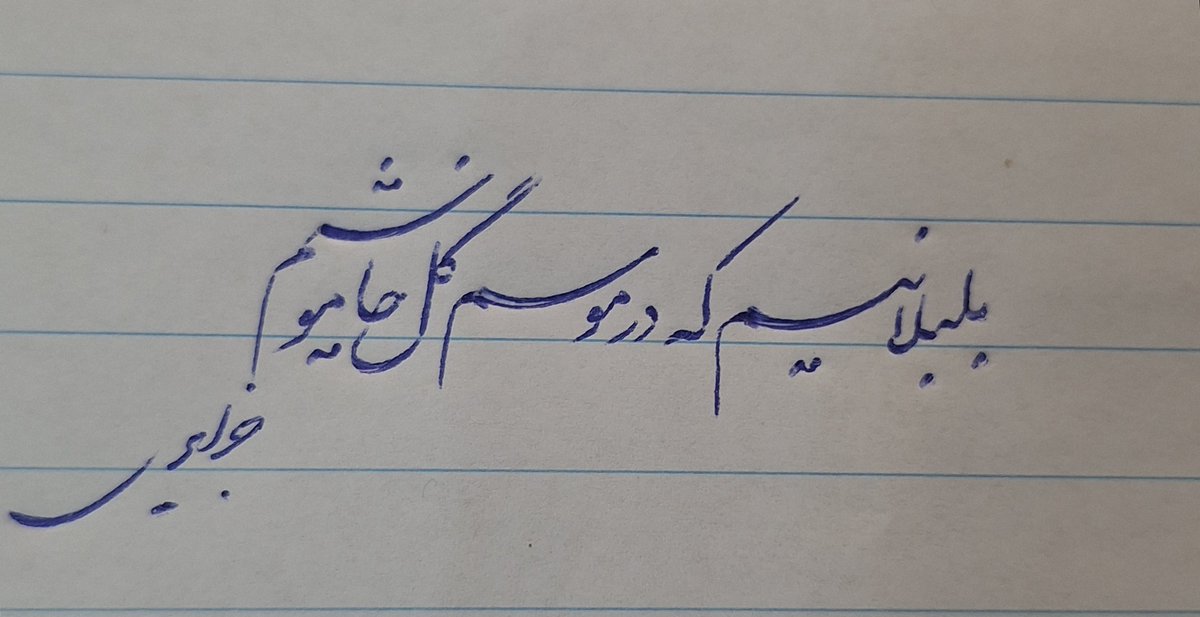 بلبلانیم که در موسم گل خاموشیم